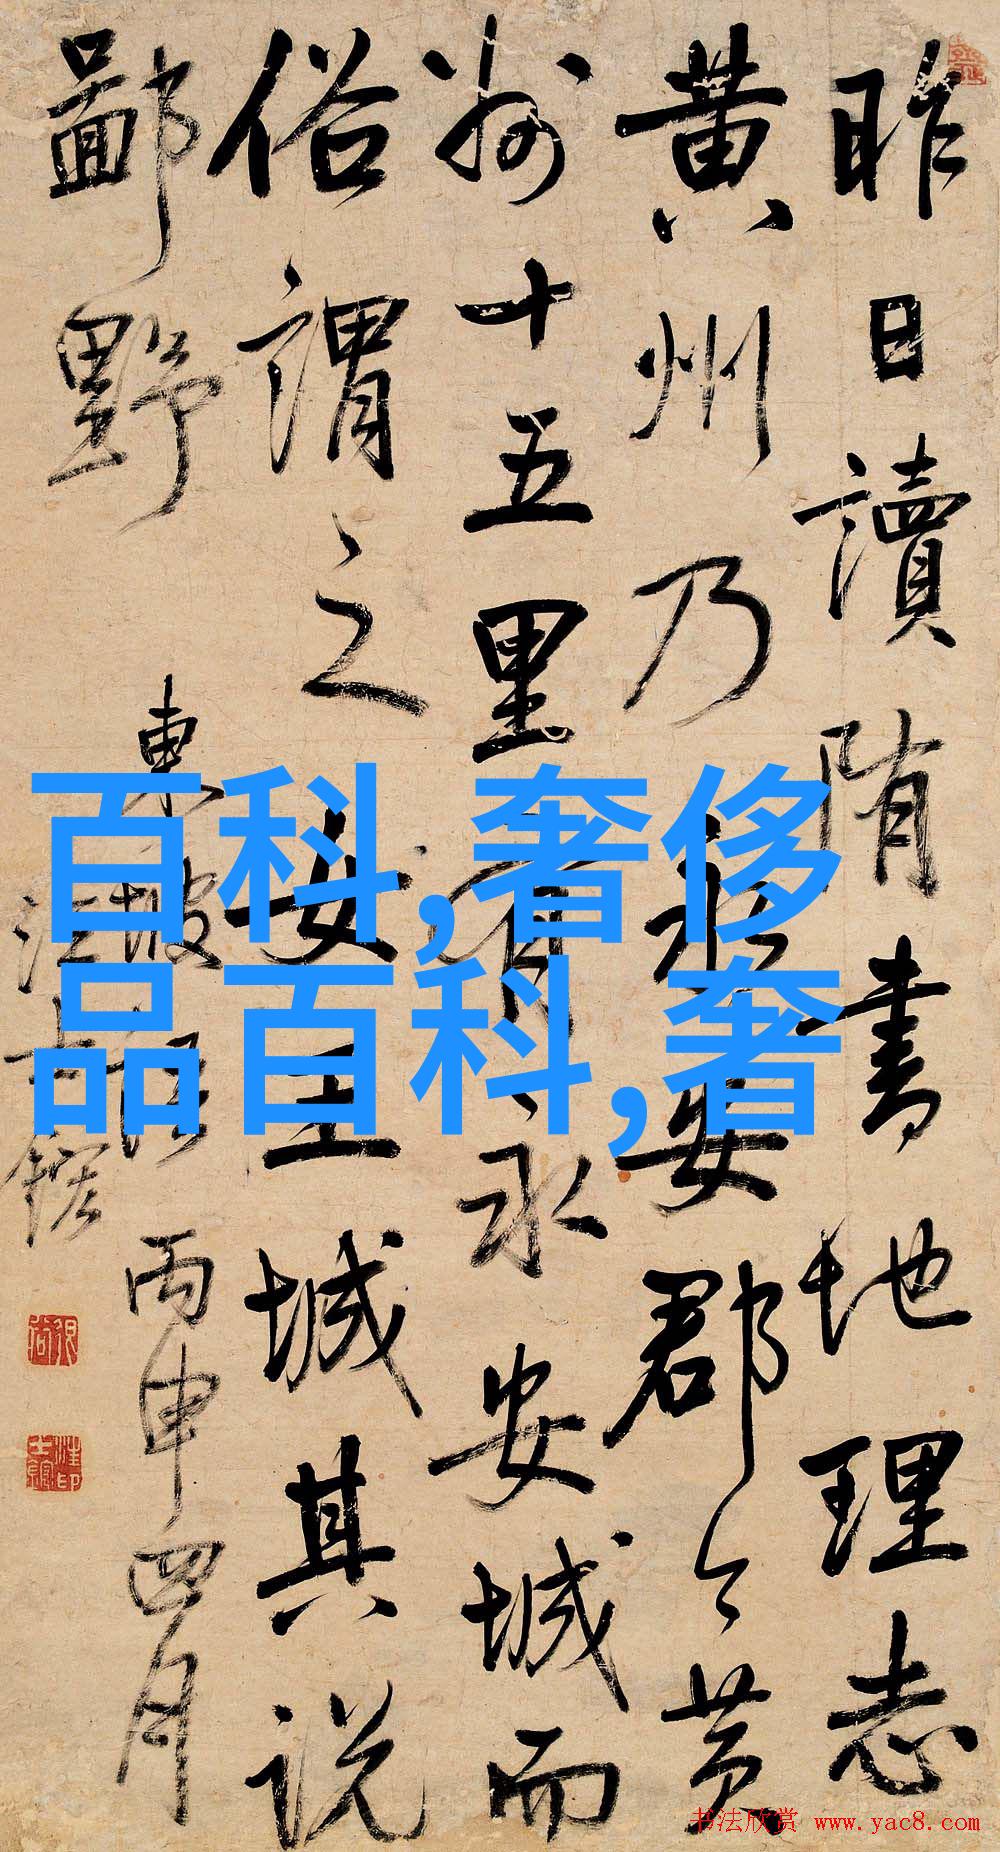 昨日讀隋書地理志
黄州乃永安郡今黄
州十五里有永安城而
俗謂之女王城其說
鄙野
東坡語 丙申四月
汪士鋐
百科,奢侈
品百科,奢
书法欣赏 www.yac8.com